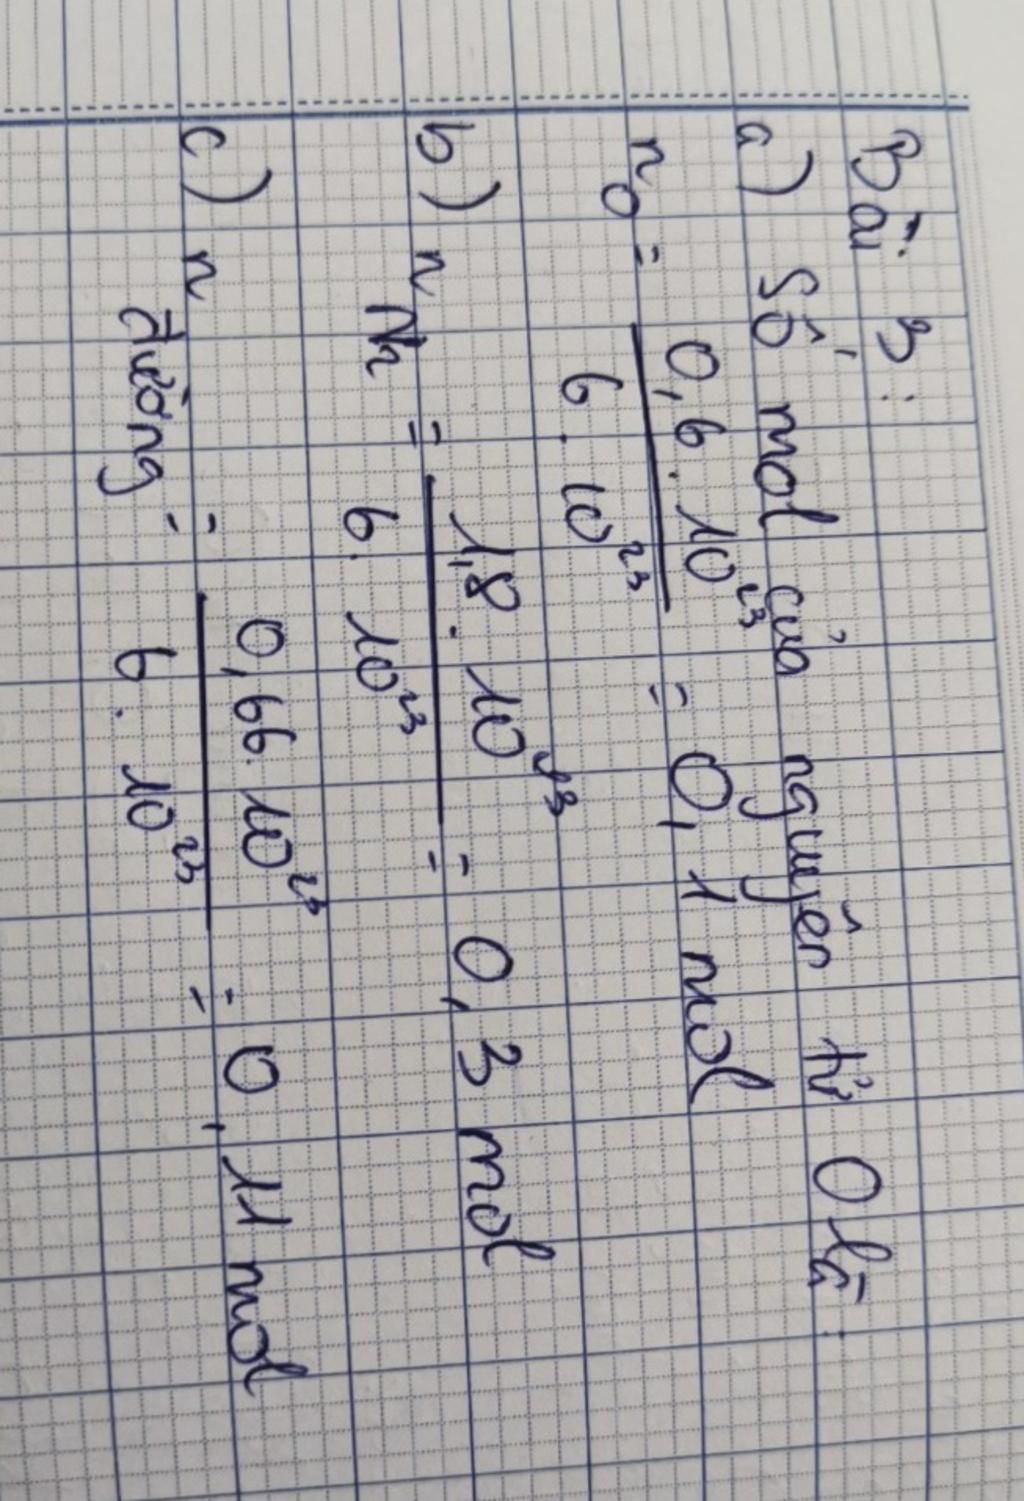 Bài 3:
a) Số mol của nguyên tử O là:
n_O = (0,6 . 10^23) / (6 . 10^23) = 0,1 mol
b) n_N2 = (1,8 . 10^23) / (6 . 10^23) = 0,3 mol
c) n_đường = (0,66 . 10^23) / (6 . 10^23) = 0,11 mol